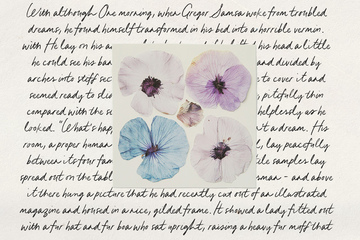 With although One morning, when Gregor Samsa woke from troubled
dreams, he found himself transformed in his bed into a horrible vermin.
with He lay on his a his head a little
he could see his b and divided by
arches into stiff sec to cover it and
seemed ready to sli pitifully thin
compared with the s helplessly as he
looked. "What's hap t a dream. His
room, a proper human lay peacefully
between its four fam ile samples lay
spread out on the tab sman - and above
it there hung a picture that he had recently cut out of an illustrated
magazine and housed in a nice, gilded frame. It showed a lady fitted out
with a fur hat and fur boa who sat upright, raising a heavy fur muff that